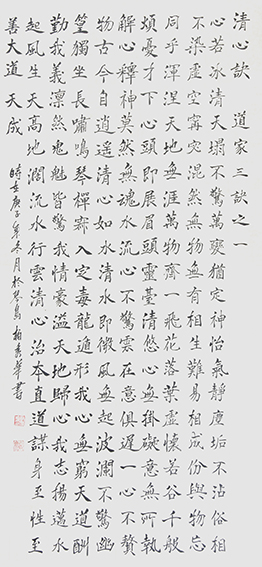 清心訣　道家三訣之一
心若冰清天塌無驚萬變猶定神怡氣靜塵垢不沾俗相
不染虛空甯宓混然無物無有相生難易相成份與物忘
同乎渾涅天地無涯萬物齊一飛花落葉虛懷若谷千般
煩憂才下心頭即展眉頭靈臺清悠心無掛礙意無所執
解心釋神莫然無魂水流心不驚雲在意俱遲一心不贅
物古今自逍遙清心如水清水即微風無起波瀾不驚幽
篁獨坐長嘯鳴琴禪寂入定毒龍遁形我心無窮天道酬
勤我義凛然鬼魅皆驚我情豪溢天地歸心我志揚邁水
起風生天高地闊流水行雲清心治本直道謀身至性至
善大道天成　時在庚子年冬月於琴島　秀華書